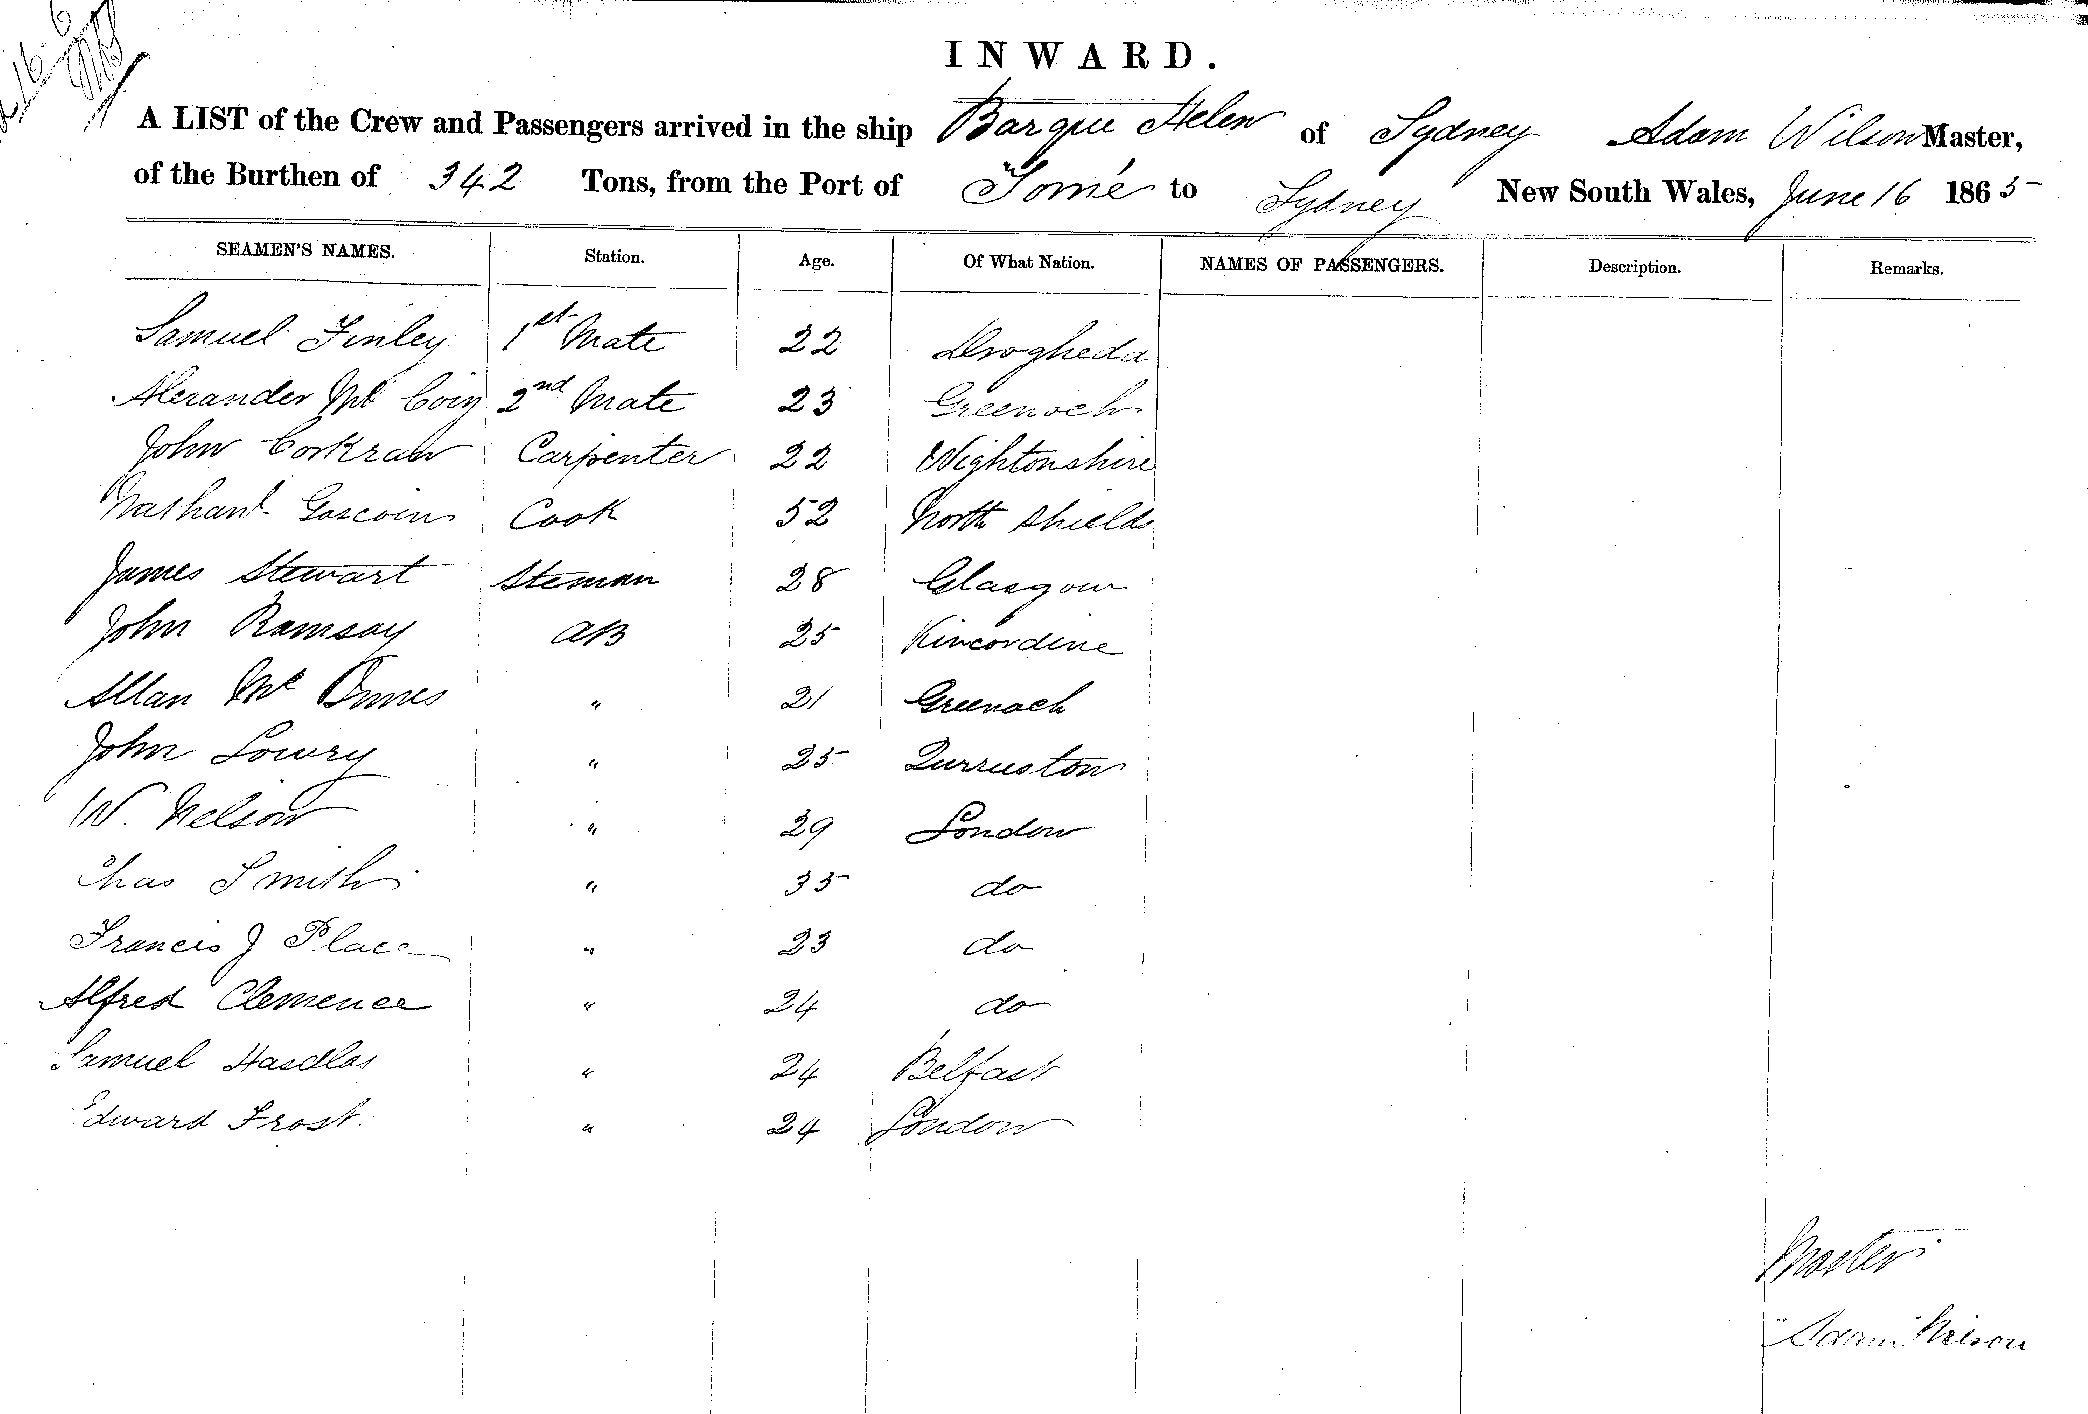 INWARD.
A LIST of the Crew and Passengers arrived in the ship Barque Helen of Sydney Adam Wilson Master,
of the Burthen of 342 Tons, from the Port of Tomé to Sydney New South Wales, June 16 1865
SEAMEN'S NAMES. Station. Age. Of What Nation. NAMES OF PASSENGERS. Description. Remarks.
Samuel Finley 1st Mate 22 Drogheda
Alexander Mc Coig 2nd Mate 23 Greenock
John Corkran Carpenter 22 Wightonshire
Nathanl Gascoin Cook 52 North Shields
James Stewart Steman 28 Glasgow
John Ramsay AB 25 Kincordine
Allan Mc Innes " 21 Greenock
John Lowry " 25 
W. Nelson " 29 London
Chas Smith " 35 do
Francis J Place " 23 do
Alfred Clemence " 24 do
Samuel " 24 Belfast
Edward Frost. " 24 London
Master
Adam Wilson